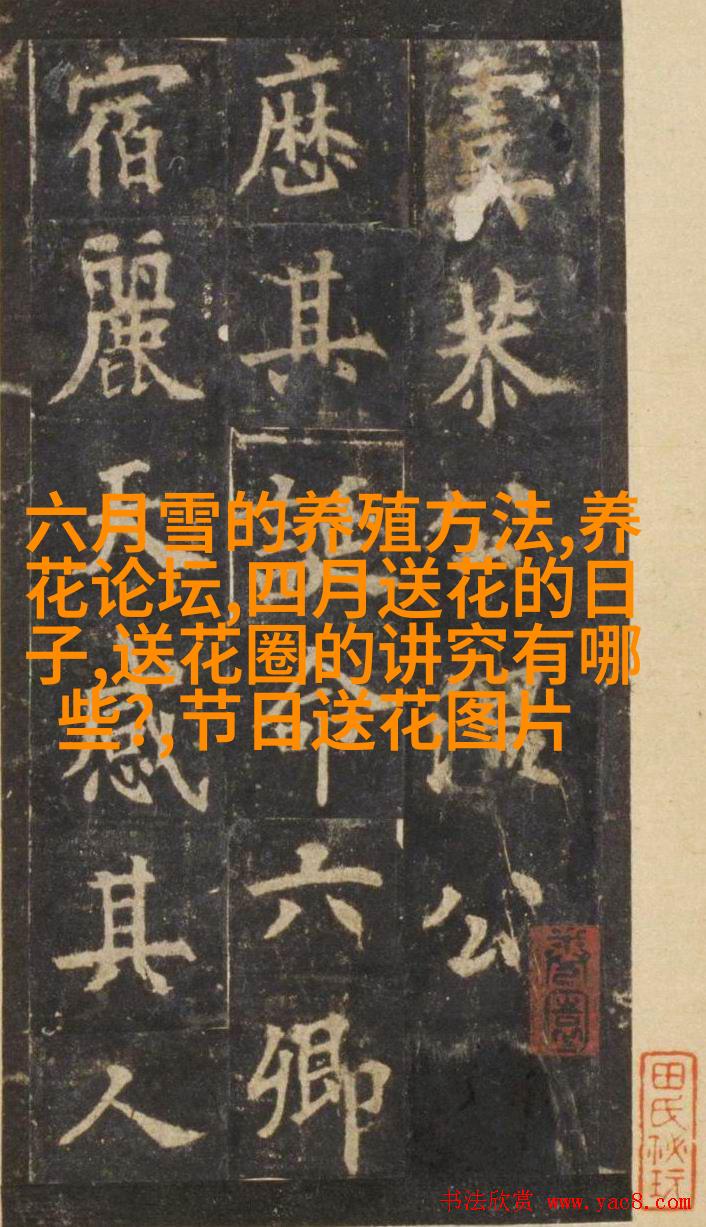 恭公
厯其六卿
宿麗天感其人
六月雪的养殖方法,养
花论坛,四月送花的日
子,送花圈的讲究有哪
些?,节日送花图片
田氏秘玩
书法欣赏 www.yac8.com